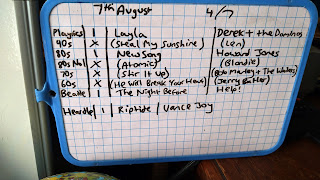 7th August 4/7
Playlics 1 Layla Derek + the Dominos
90s X (Steal My Sunshine) (Len)
80s 1 New Song Howard Jones
80s No1 X (Atomic) (Blondie)
70s X (Stir It Up) (Bob Marley + The Wailers)
60s X (He Will Break Your Heart) (Jerry Butler)
Beatle 1 The Night Before Help!
Heardle 1 Riptide / Vance Joy